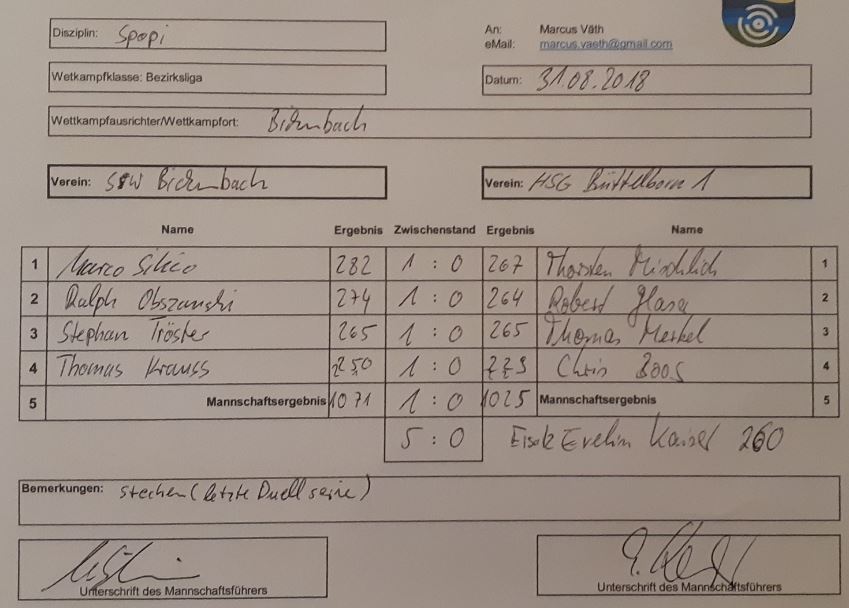 Disziplin: Spopi
An: Marcus Väth
eMail: marcus.vaeth@gmail.com
Wetkampfklasse: Bezirksliga
Datum: 31.08.2018
Wettkampfausrichter/Wettkampfort: Birkenbach
Verein: Birkenbach
Verein: HSG Büttelborn 1
Name Ergebnis Zwischenstand Ergebnis Name
1 Marco 282 1 : 0 267 Thorsten 1
2 Ralph 274 1 : 0 264 Robert 2
3 Stephan Tröster 265 1 : 0 265 Thomas Merkel 3
4 Thomas Krauss 250 1 : 0 229 Chris Boos 4
5 Mannschaftsergebnis 1071 1 : 0 1025 Mannschaftsergebnis 5
5 : 0 Evelin Kaiser 260
Bemerkungen: Stechen (letzte Duell serie)
Unterschrift des Mannschaftsführers
Unterschrift des Mannschaftsführers